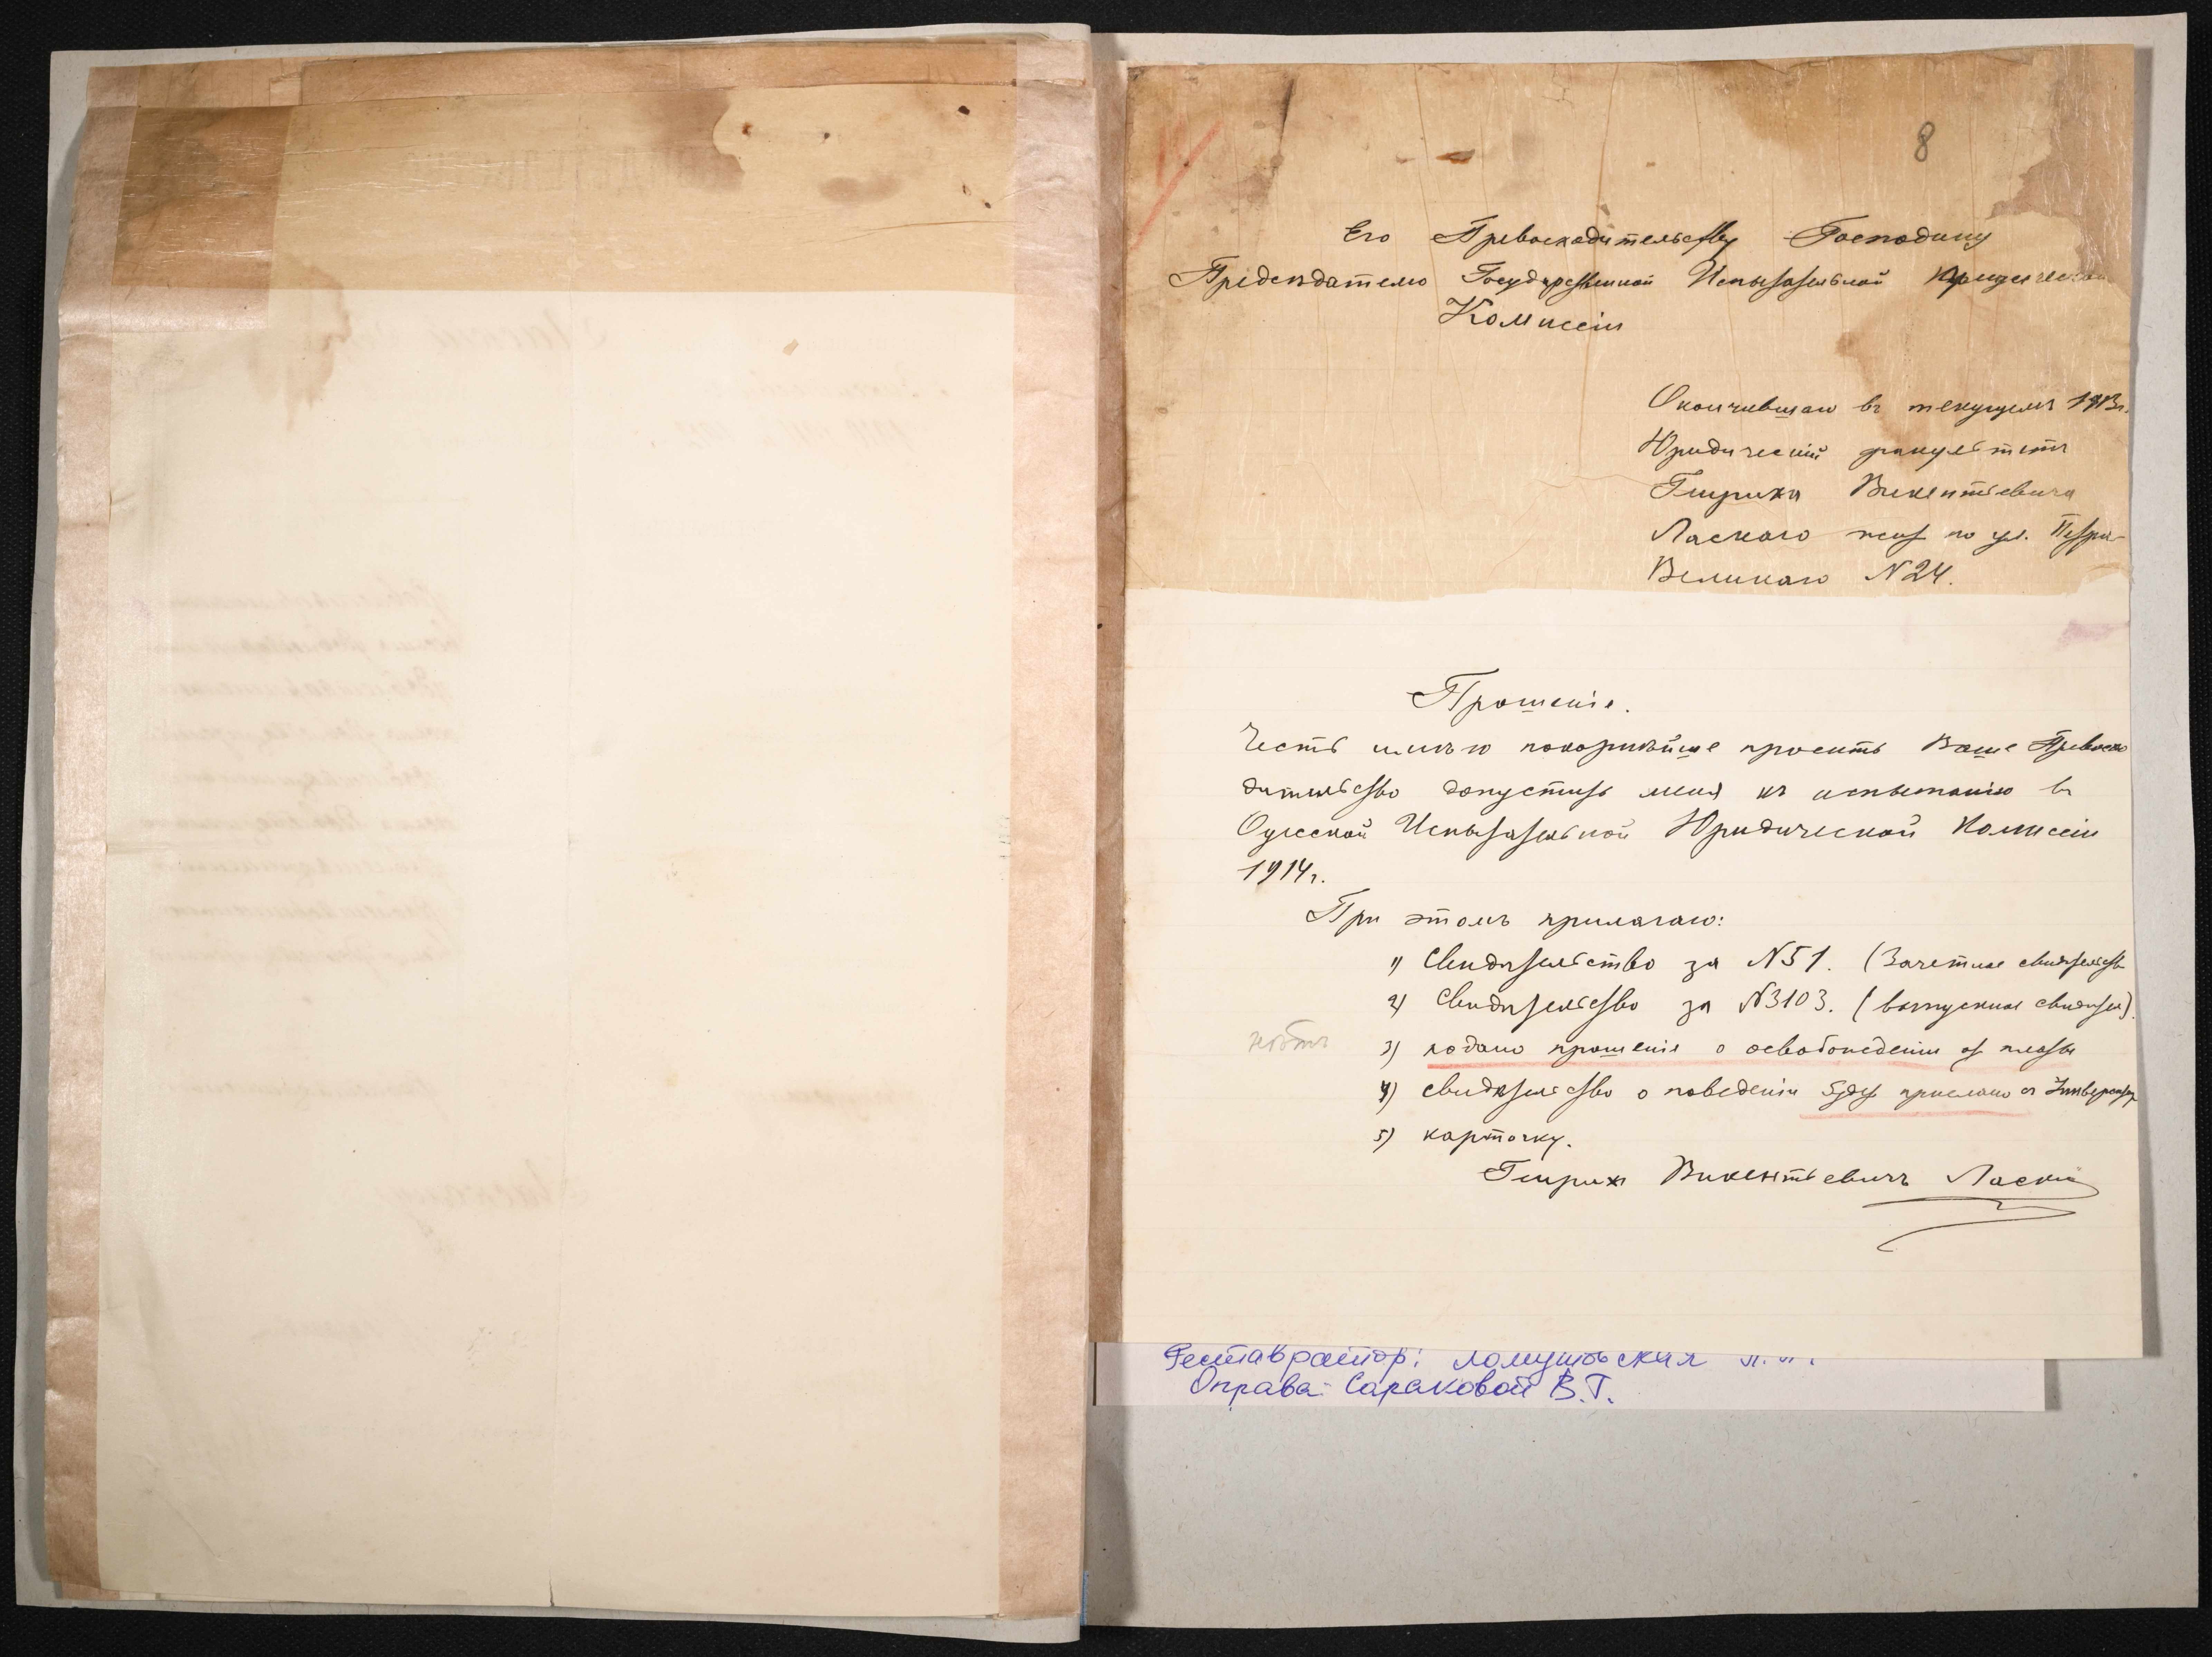 8
Его Превосходительству Господину
Предсѣдателю Государственной Испытательной Юридической
Комиссіи
Окончившаго въ текущемъ 1913г.
Юридическій факультетъ
Генриха Викентьевича
Ласкаго жит по ул. Петра
Великаго N24.
Прошеніе.
Честь имѣю покорнѣйше просить Ваше Превосхо
дительство допустить меня къ испытанію въ
Одесской Испытательной Юридической Комиссіи
1914г.
При этомъ прилагаю:
1) Свидѣтельство за N51. (Зачетное свидѣтельств
2) Свидѣтельство за N3103. (выпускное свидѣтел).
нѣтъ 3) подано прошеніе о освобожденіи от платы
4) свидѣтельство о поведеніи будет прислано
5) карточку.
Генрих Викентьевичъ Ласкій
Реставратор:
Оправа Сараковой В.Г.